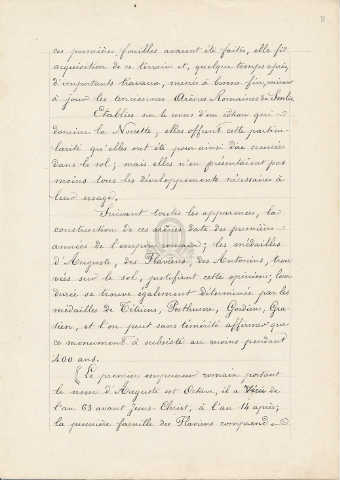 ces premières fouilles avaient été faites, elle fit
acquisition de ce terrain et, quelque temps après,
d'importants travaux, menés à bonne fin, mirent
à jour les curieuses Arènes Romaines de Senlis.
Etablies sur le creux d'un côteau qui
domine la Nonette, elles offrent cette particu-
larité qu'elles ont été pour ainsi dire creusées
dans le sol; mais elles n'en présentaient pas
moins tous les développements nécessaires à
leur usage.
Suivant toutes les apparences, la
construction de ces arènes date des premières
années de l'empire romain; les médailles
d'Auguste, des Flaviens, des Antonins, trou-
vées sur le sol, justifient cette opinion; leur
durée se trouve également déterminée par les
médailles de Tétricus, Posthume, Gordien, Gra-
tien, et l'on peut sans témérité affirmer que
ce monument a subsisté au moins pendant
400 ans.
(Le premier empereur romain portant
le nom d'Auguste est Octave, il a vécu de
l'an 63 avant Jésus-Christ, à l'an 14 après;
la première famille des Flaviens comprend